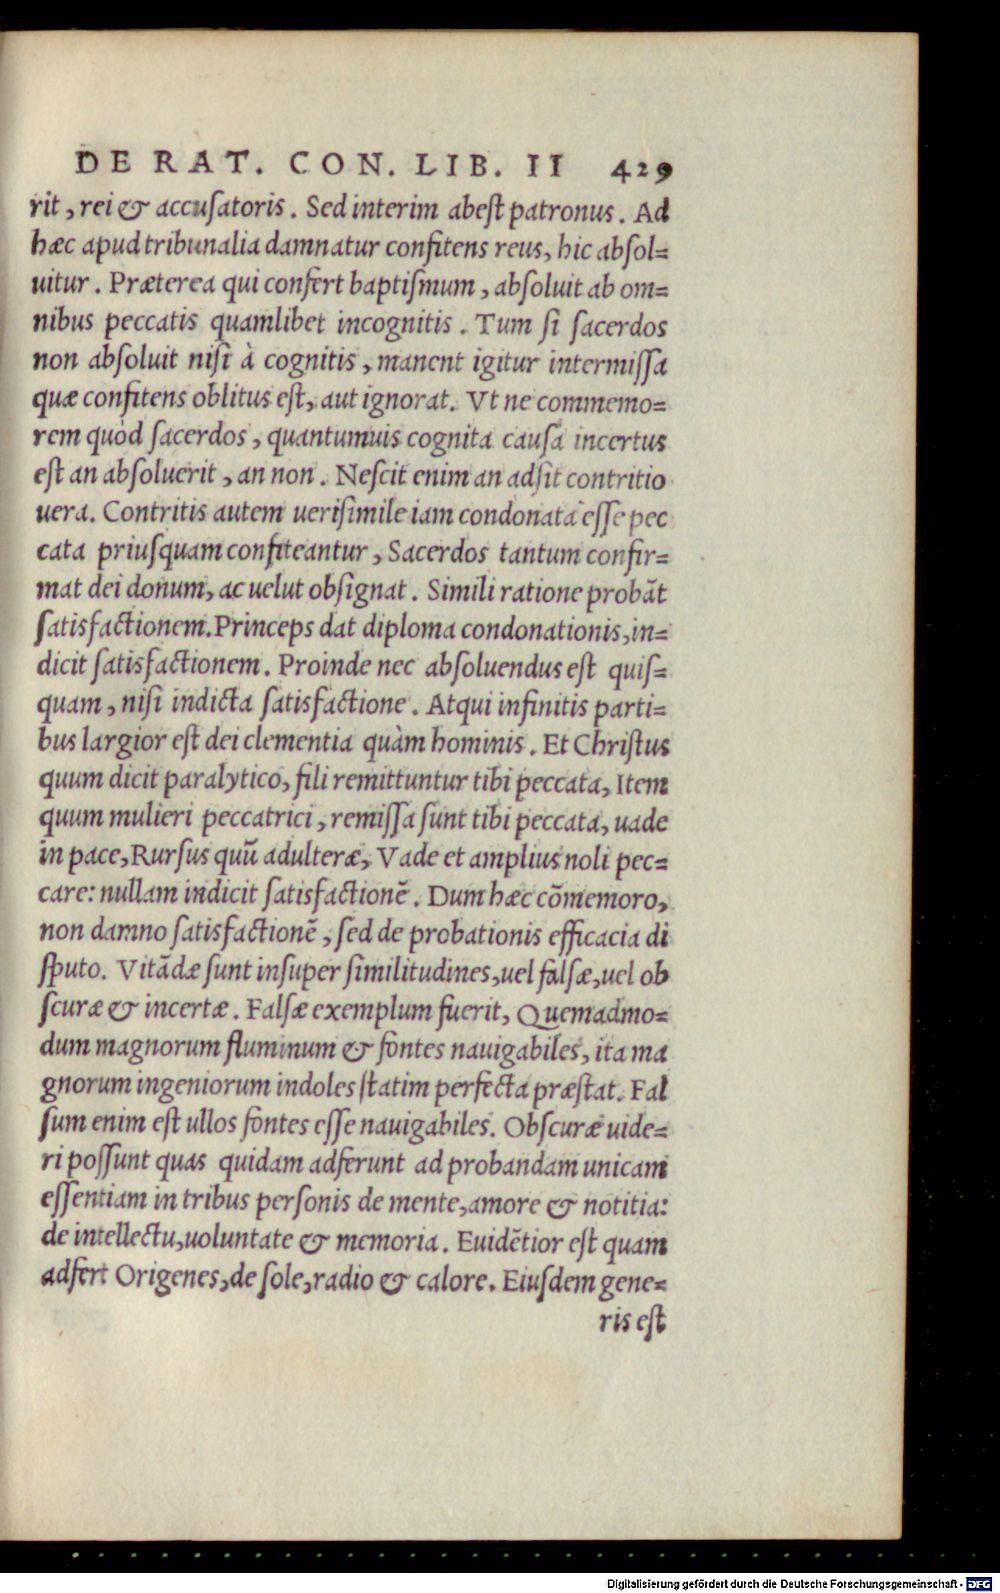 DE RAT. CON. LIB. II 429
rit, rei & accuſatoris. Sed interim abeſt patronus. Ad
hæc apud tribunalia damnatur confitens reus, hic abſol=
uitur. Præterea qui confert baptiſmum, abſoluit ab om=
nibus peccatis quamlibet incognitis. Tum ſi ſacerdos
non abſoluit niſi à cognitis, manent igitur intermiſſa
quæ confitens oblitus eſt, aut ignorat. Vt ne commemo=
rem quòd ſacerdos, quantumuis cognita cauſa incertus
eſt an abſoluerit, an non. Neſcit enim an adſit contritio
uera. Contritis autem ueriſimile iam condonata eſſe pec
cata priuſquam confiteantur, Sacerdos tantum confir=
mat dei donum, ac uelut obſignat. Simili ratione probāt
ſatisfactionem. Princeps dat diploma condonationis, in=
dicit ſatisfactionem. Proinde nec abſoluendus eſt quiſ=
quam, niſi indicta ſatisfactione. Atqui infinitis parti=
bus largior eſt dei clementia quàm hominis. Et Chriſtus
quum dicit paralytico, fili remittuntur tibi peccata, Item
quum mulieri peccatrici, remiſſa ſunt tibi peccata, uade
in pace, Rurſus quū adulteræ, Vade et amplius noli pec=
care: nullam indicit ſatisfactionē. Dum hæc cōmemoro,
non damno ſatisfactionē, ſed de probationis efficacia di
ſputo. Vitādæ ſunt inſuper ſimilitudines, uel falſæ, uel ob
ſcuræ & incertæ. Falſæ exemplum fuerit, Quemadmo=
dum magnorum fluminum & fontes nauigabiles, ita ma
gnorum ingeniorum indoles ſtatim perfecta præſtat. Fal
ſum enim eſt ullos fontes eſſe nauigabiles. Obſcuræ uide=
ri poſſunt quas quidam adferunt ad probandam unicam
eſſentiam in tribus perſonis de mente, amore & notitia:
de intellectu, uoluntate & memoria. Euidētior eſt quam
adfert Origenes, de ſole, radio & calore. Eiuſdem gene=
ris eſt
Digitalisierung gefördert durch die Deutsche Forschungsgemeinschaft - DFG